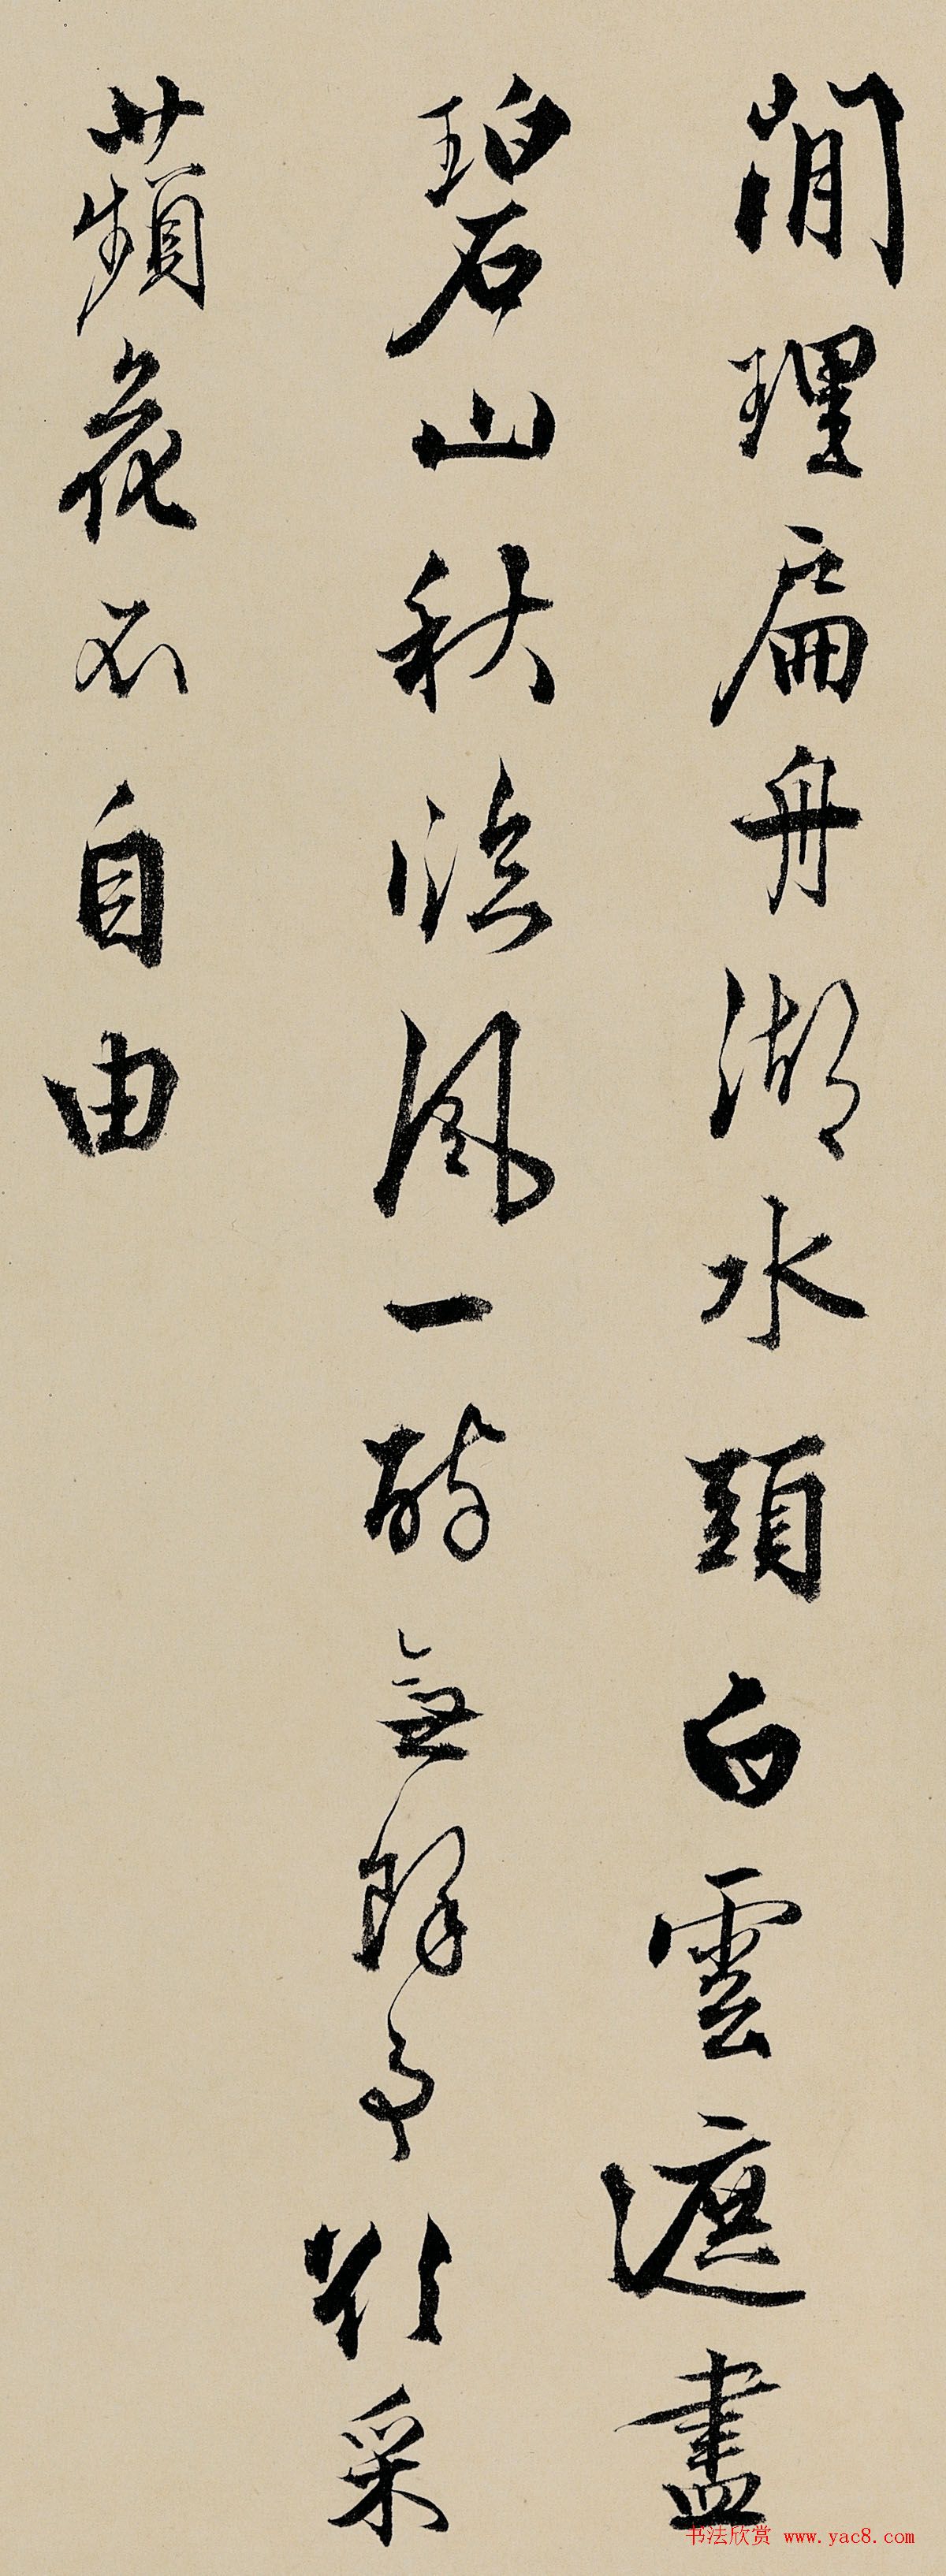 閒理扁舟湖水頭白雲遮盡
碧山秋臨風一醉無餘事欲采
蘋花不自由
书法欣赏 www.yac8.com